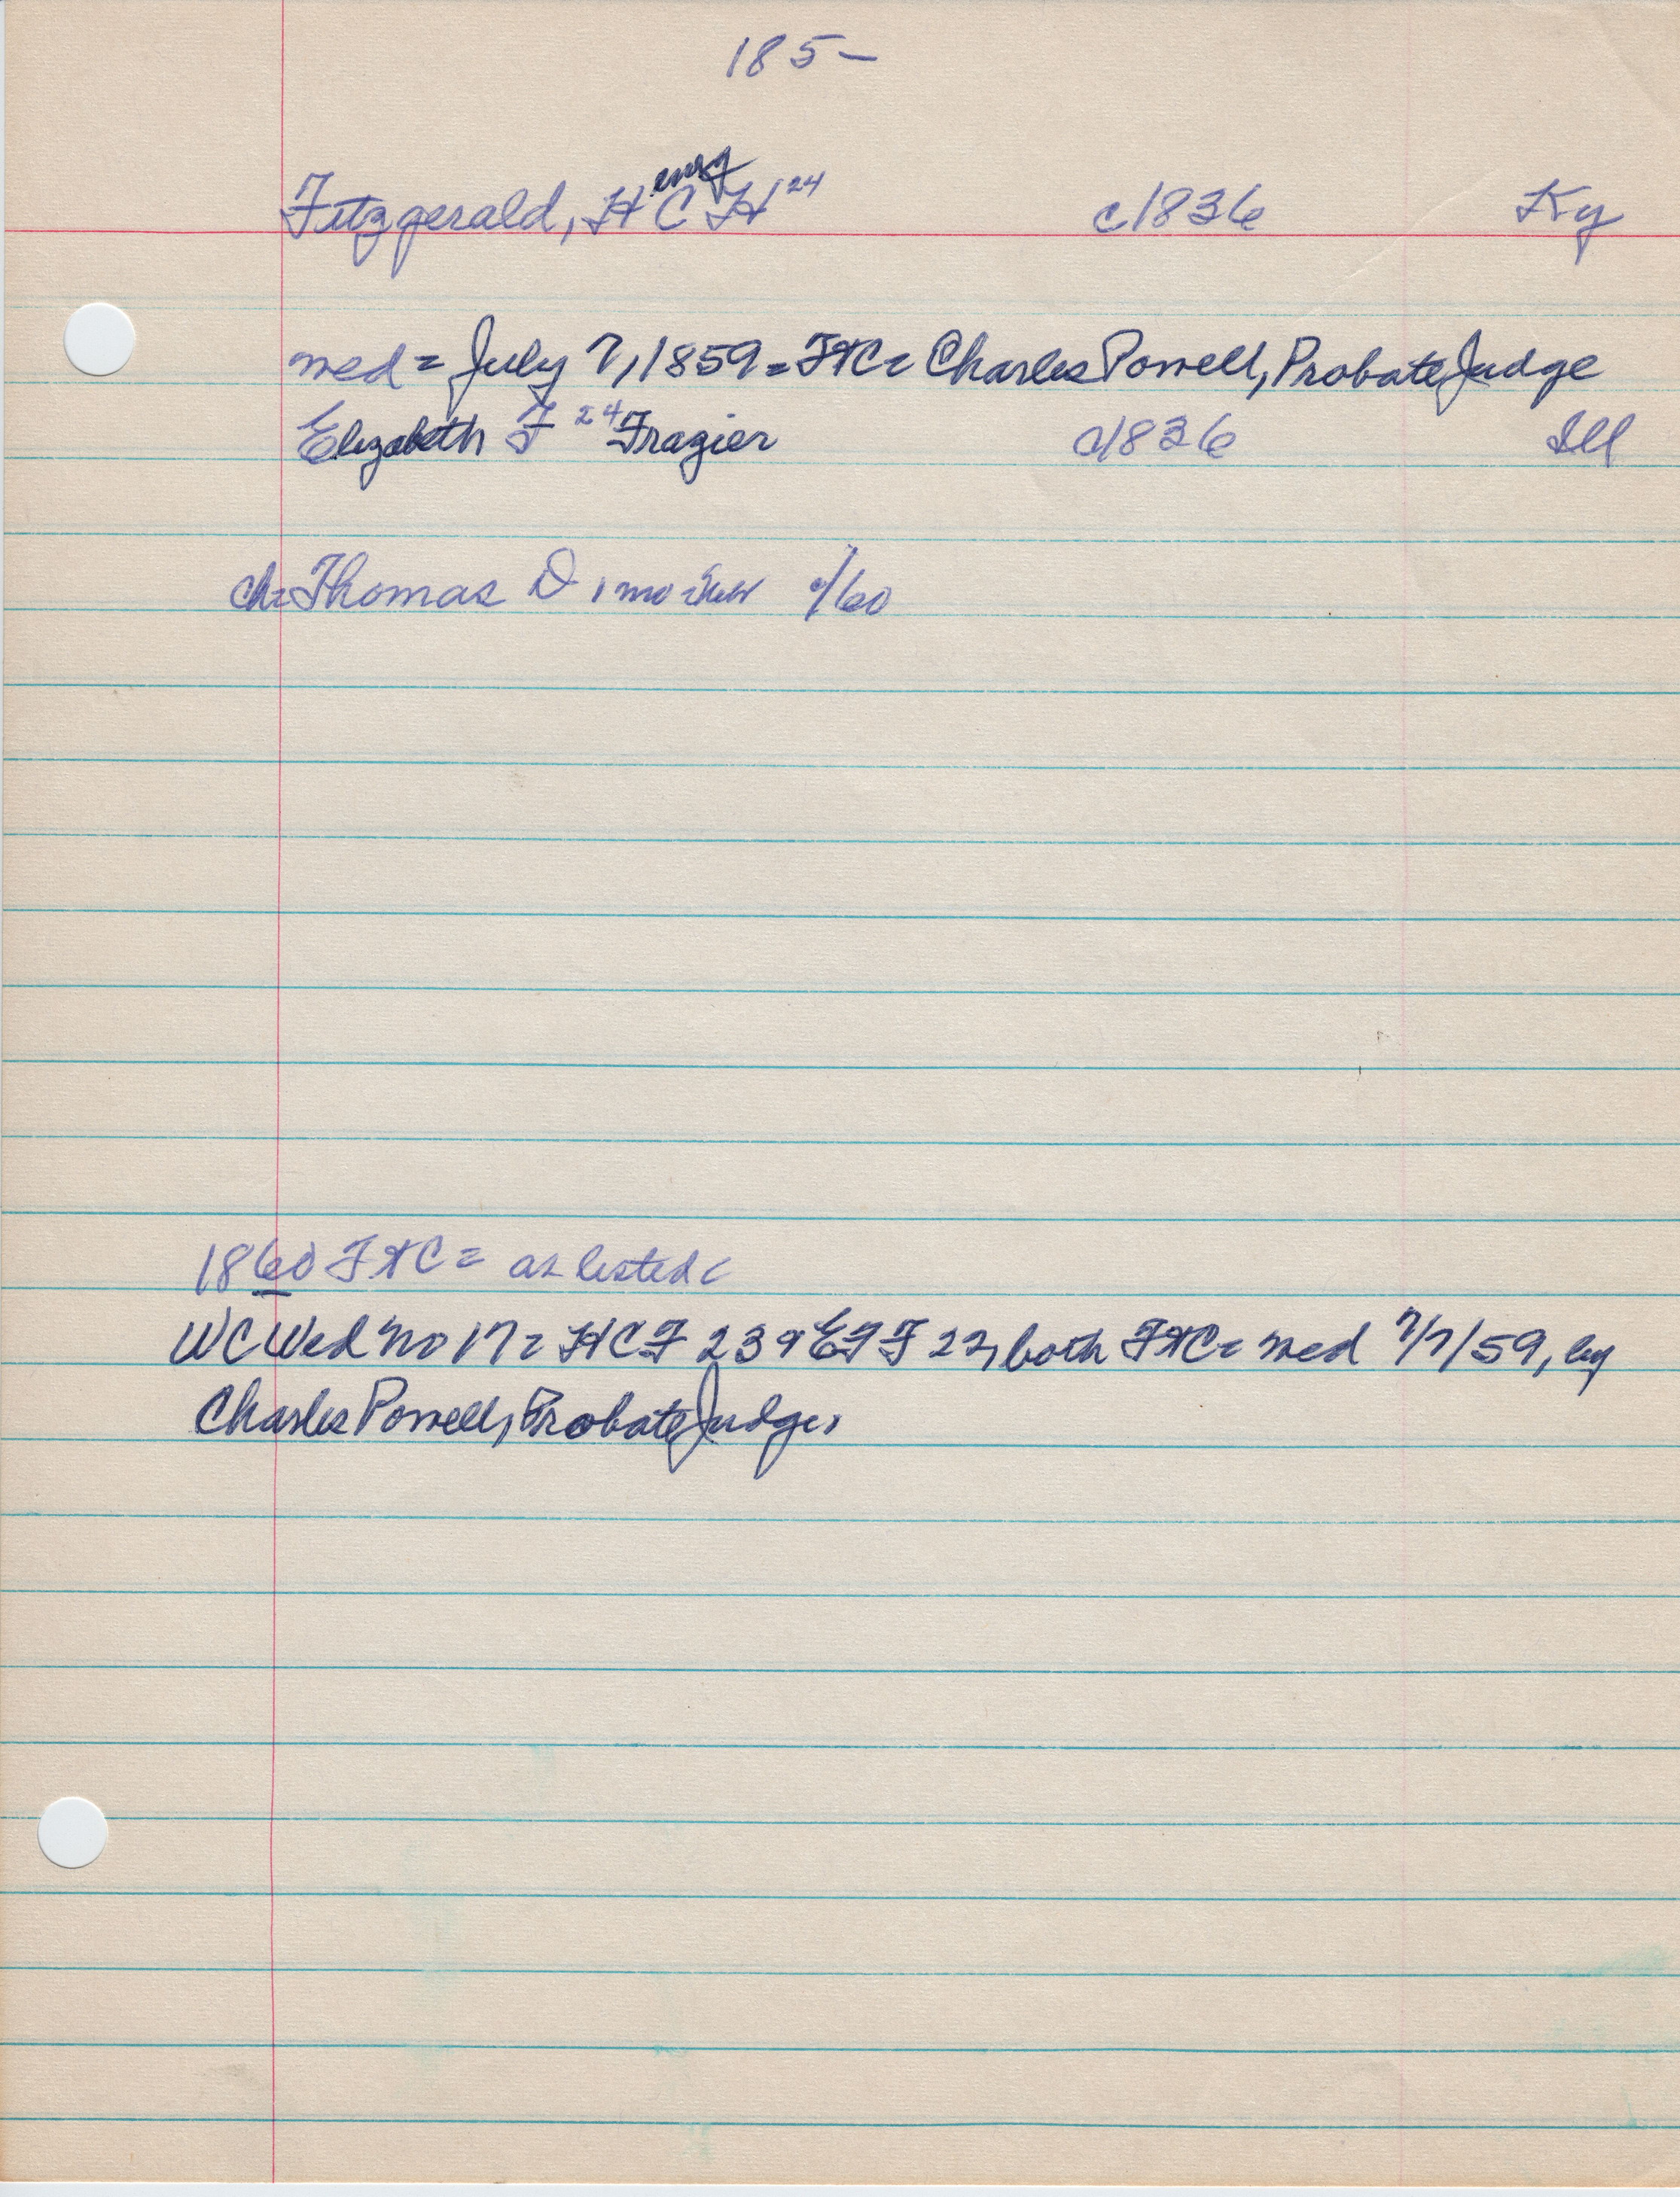 185-
Fitzgerald, H enry C H 24 c1836 Ky
med = July 7, 1859 = FtC = Charles Powell, Probate Judge
Elizabeth F 24 Frazier c1836 Ill
ch = Thomas D 1 mo c/60
1860 FtC = as listed
WC Wed No 17 = HCF 23 & EFF 22, both FtC = med 7/7/59, by
Charles Powell, Probate Judge,